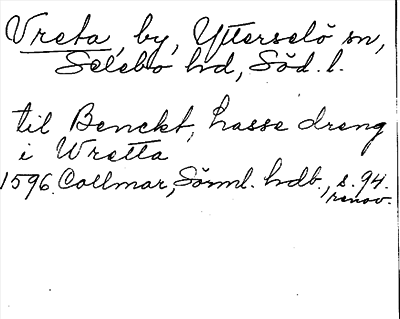 Vreta, by, Ytterselö sn,
Selebo hd, Söd. l.
til Benckt, hasse dreng
i Wretta
1596. Collmar, Sörml. hdb., s. 94.
renov.